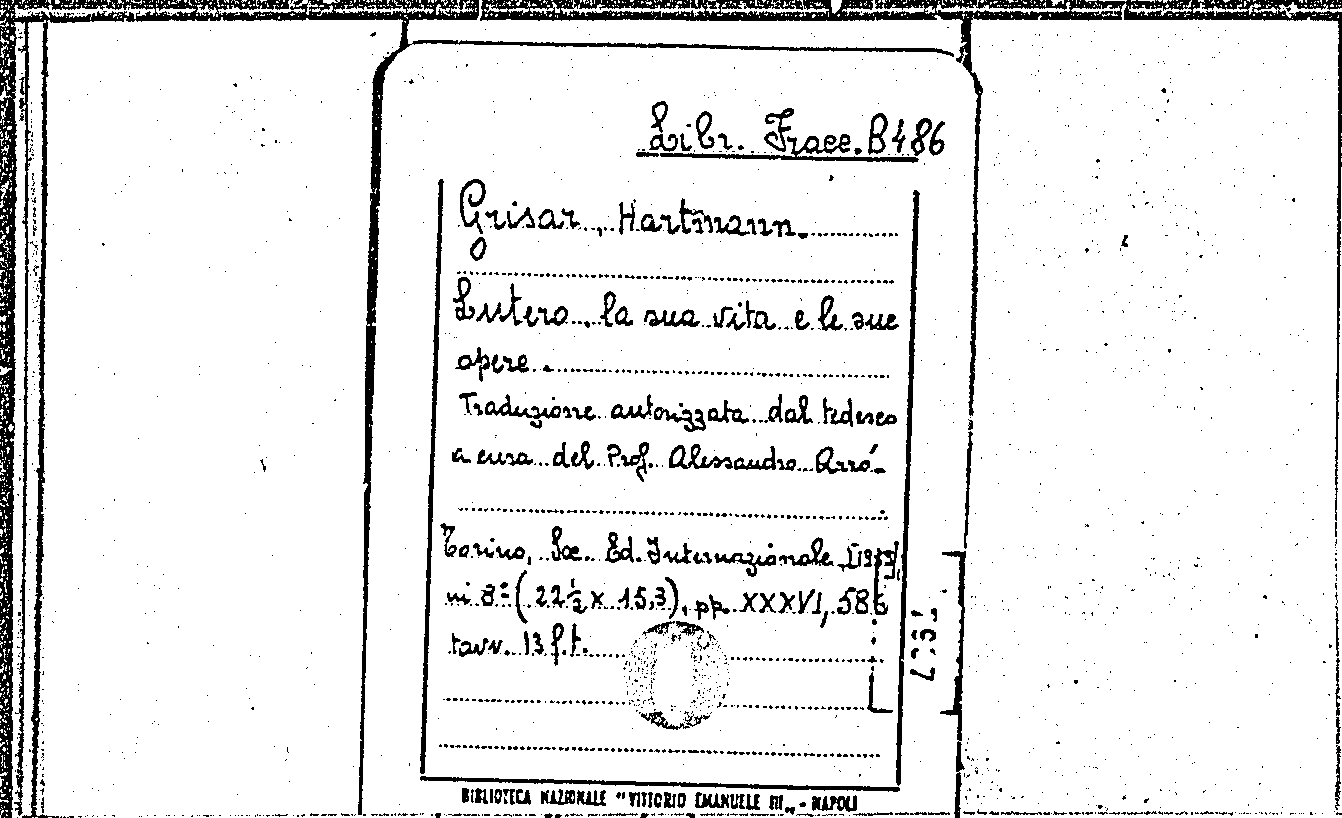 Libr. Fracc. B486
Grisar, Hartmann.
Lutero, la sua vita e le sue
opere.
Traduzione autorizzata dal tedesco
a cura del Prof. Alessandro Arró.
Torino, Soc. Ed. Internazionale,
in 8º (22½ x 15,3), pp. XXXVI, 586
tavv. 13 f.t.
BIBLIOTECA NAZIONALE "VITTORIO EMANUELE III„ - NAPOLI